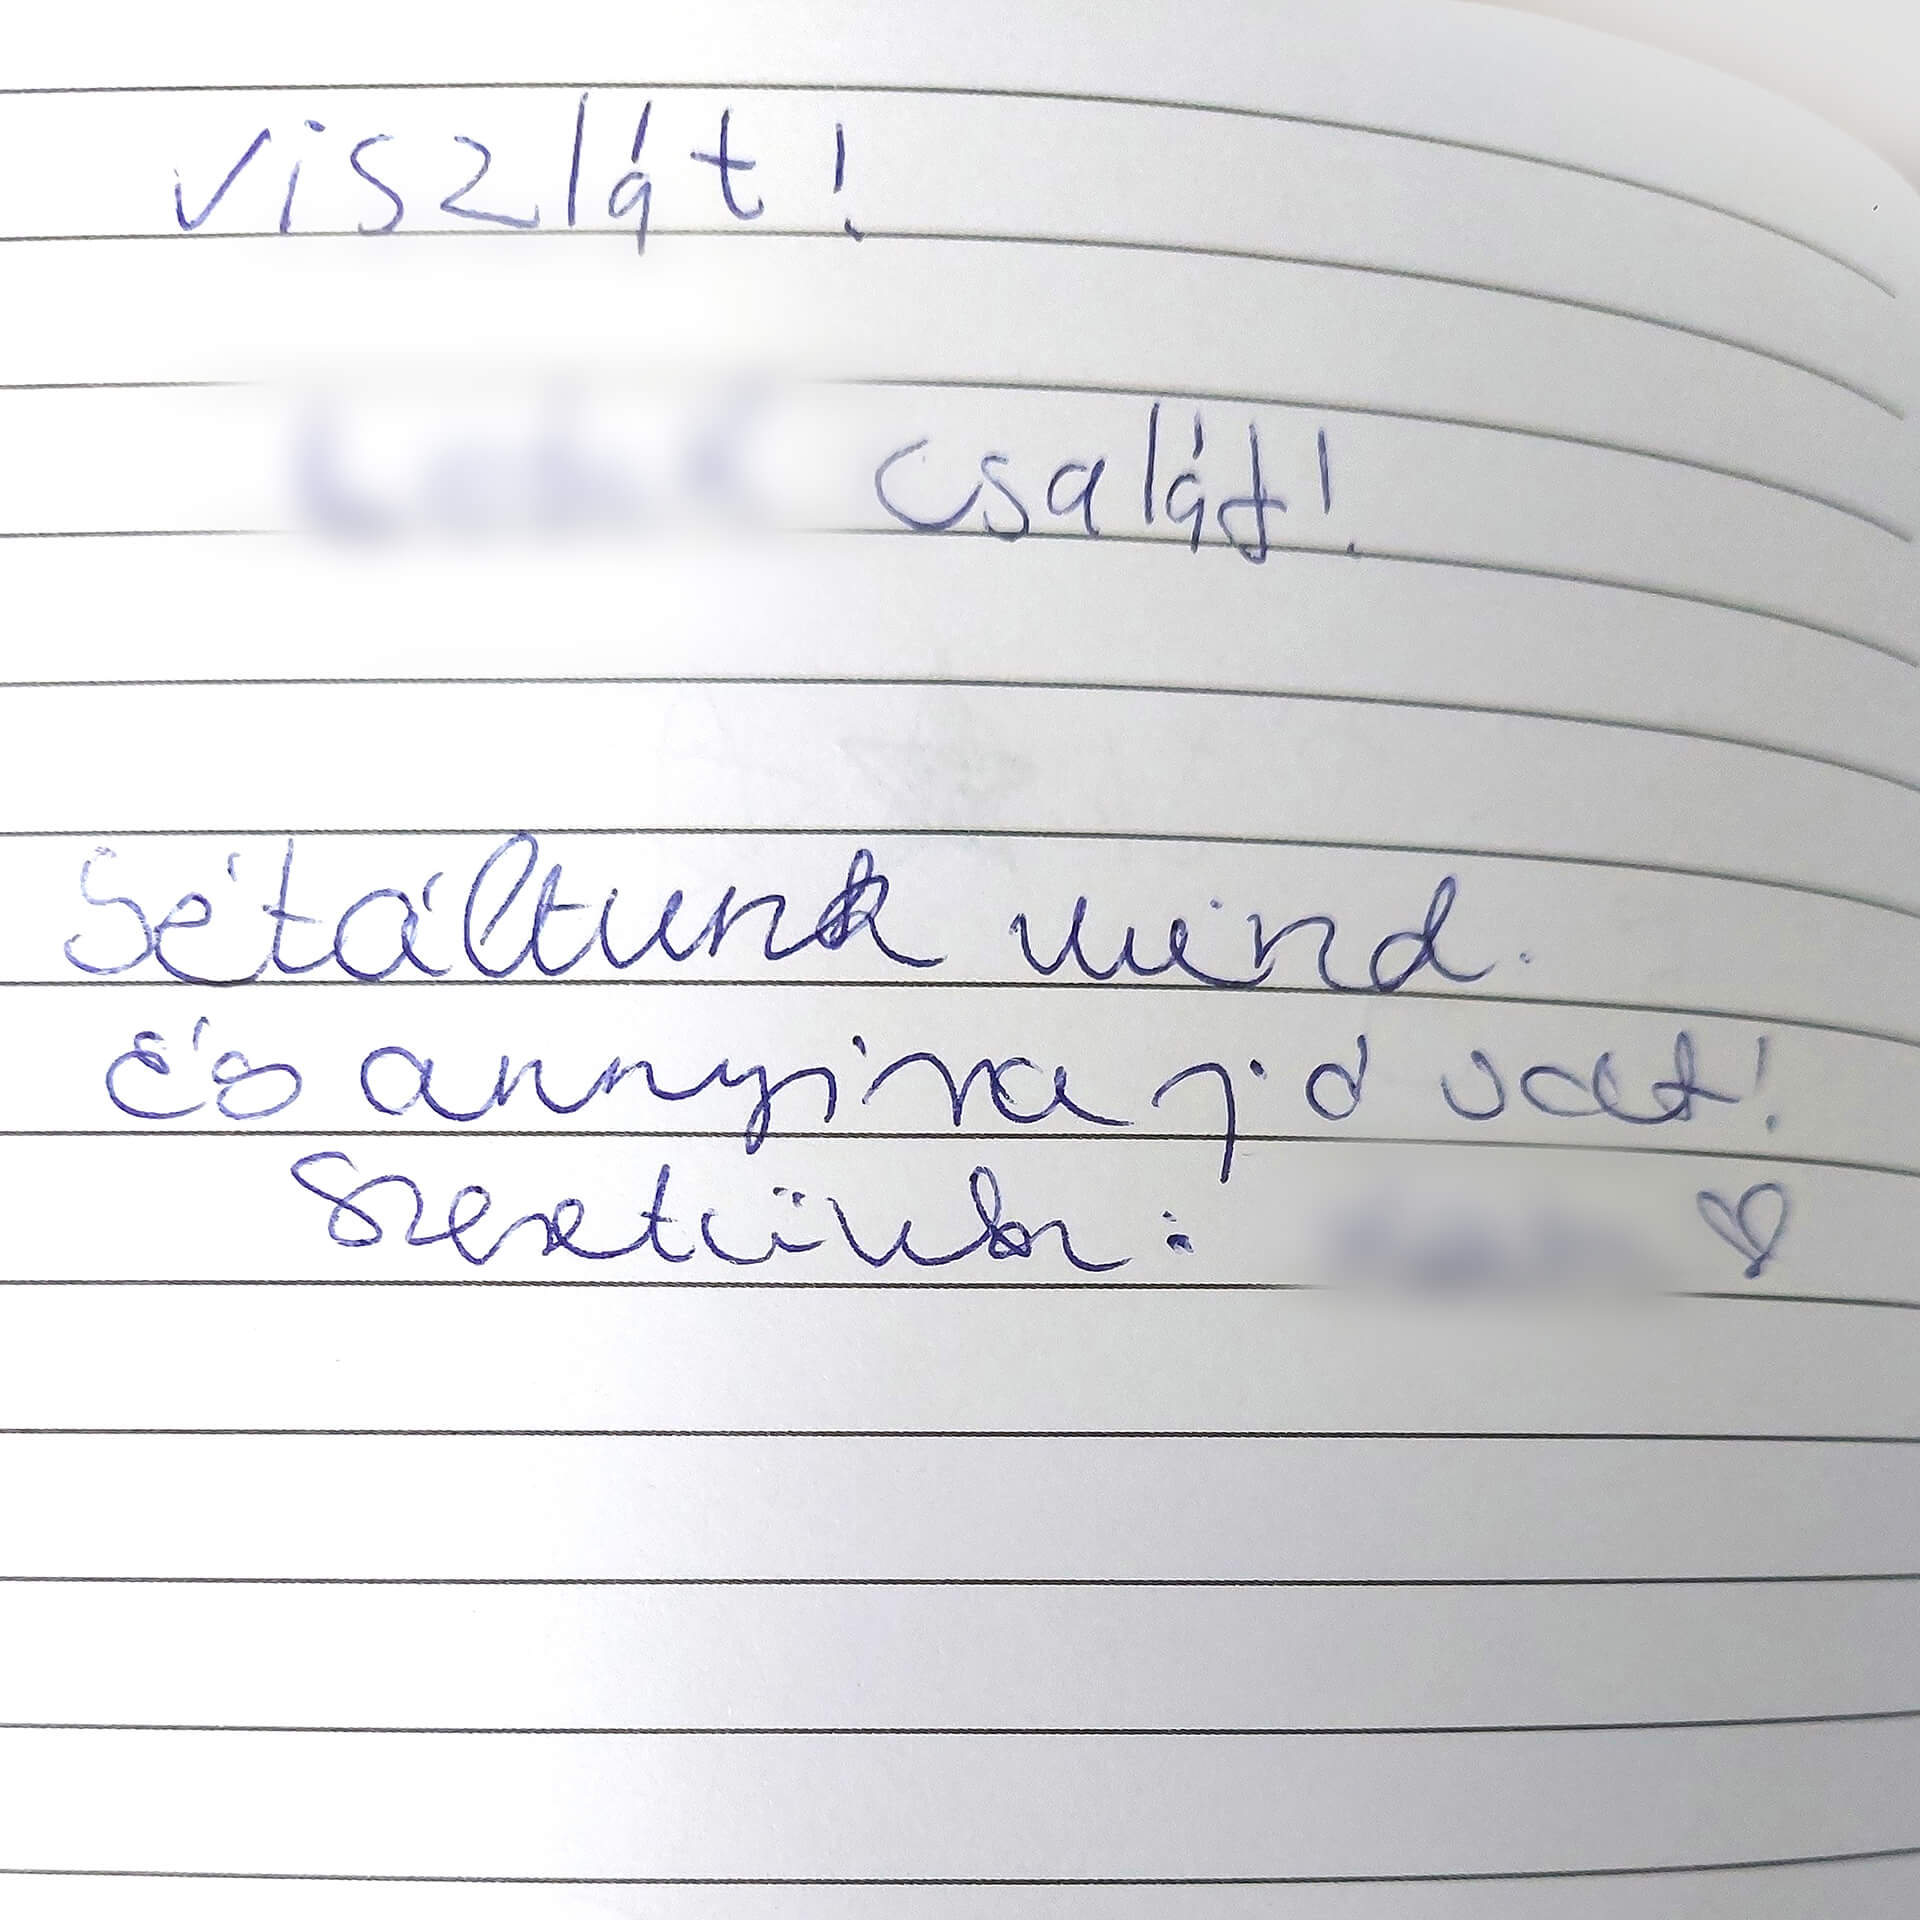 viszlát!
család!
Sétáltunk mind.
És annyira jó volt!
Szeretünk: ♡